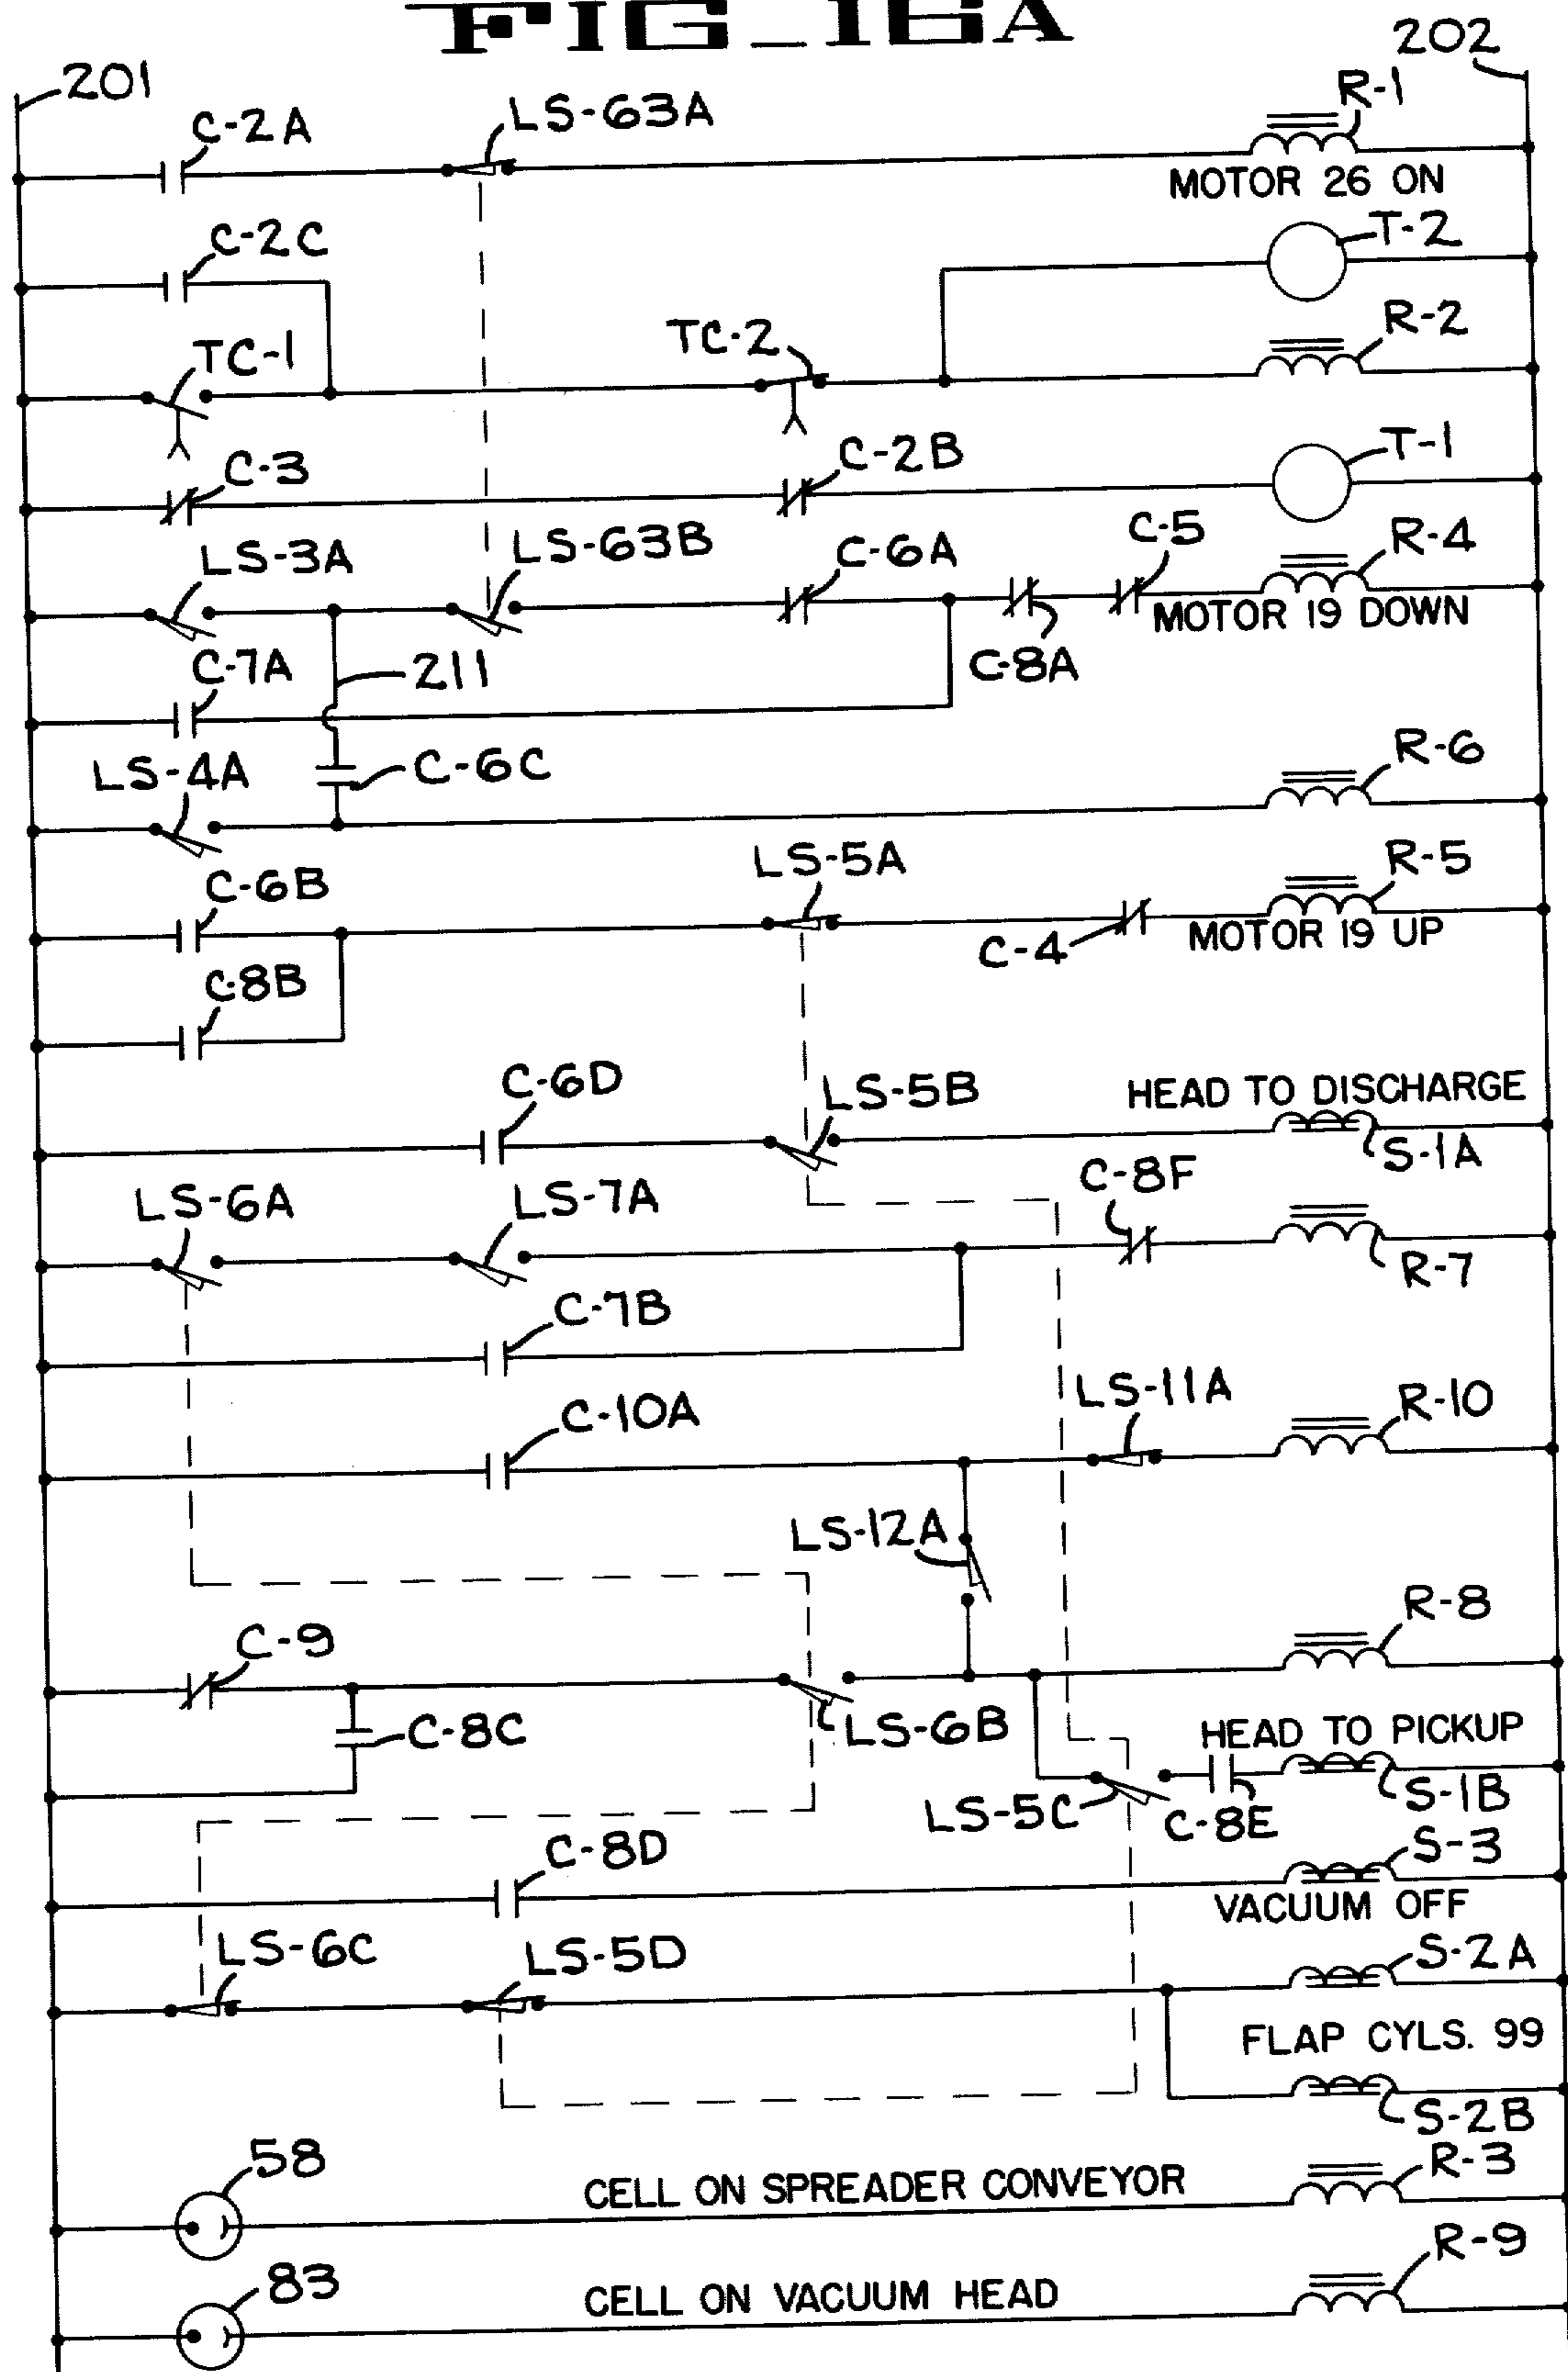 FIG_16A
201
202
C-2A
LS-63A
R-1
MOTOR 26 ON
C-2C
T-2
TC-1
TC-2
R-2
C-3
C-2B
T-1
LS-3A
LS-63B
C-6A
C-5
R-4
MOTOR 19 DOWN
C-7A
211
C-8A
LS-4A
C-6C
R-6
C-6B
LS-5A
R-5
C-4
MOTOR 19 UP
C-8B
C-6D
LS-5B
HEAD TO DISCHARGE
S-1A
LS-6A
LS-7A
C-8F
R-7
C-7B
C-10A
LS-11A
R-10
LS-12A
C-9
R-8
C-8C
LS-6B
HEAD TO PICKUP
LS-5C
C-8E
S-1B
C-8D
S-3
VACUUM OFF
LS-6C
LS-5D
S-2A
FLAP CYLS. 99
S-2B
58
CELL ON SPREADER CONVEYOR
R-3
83
CELL ON VACUUM HEAD
R-9